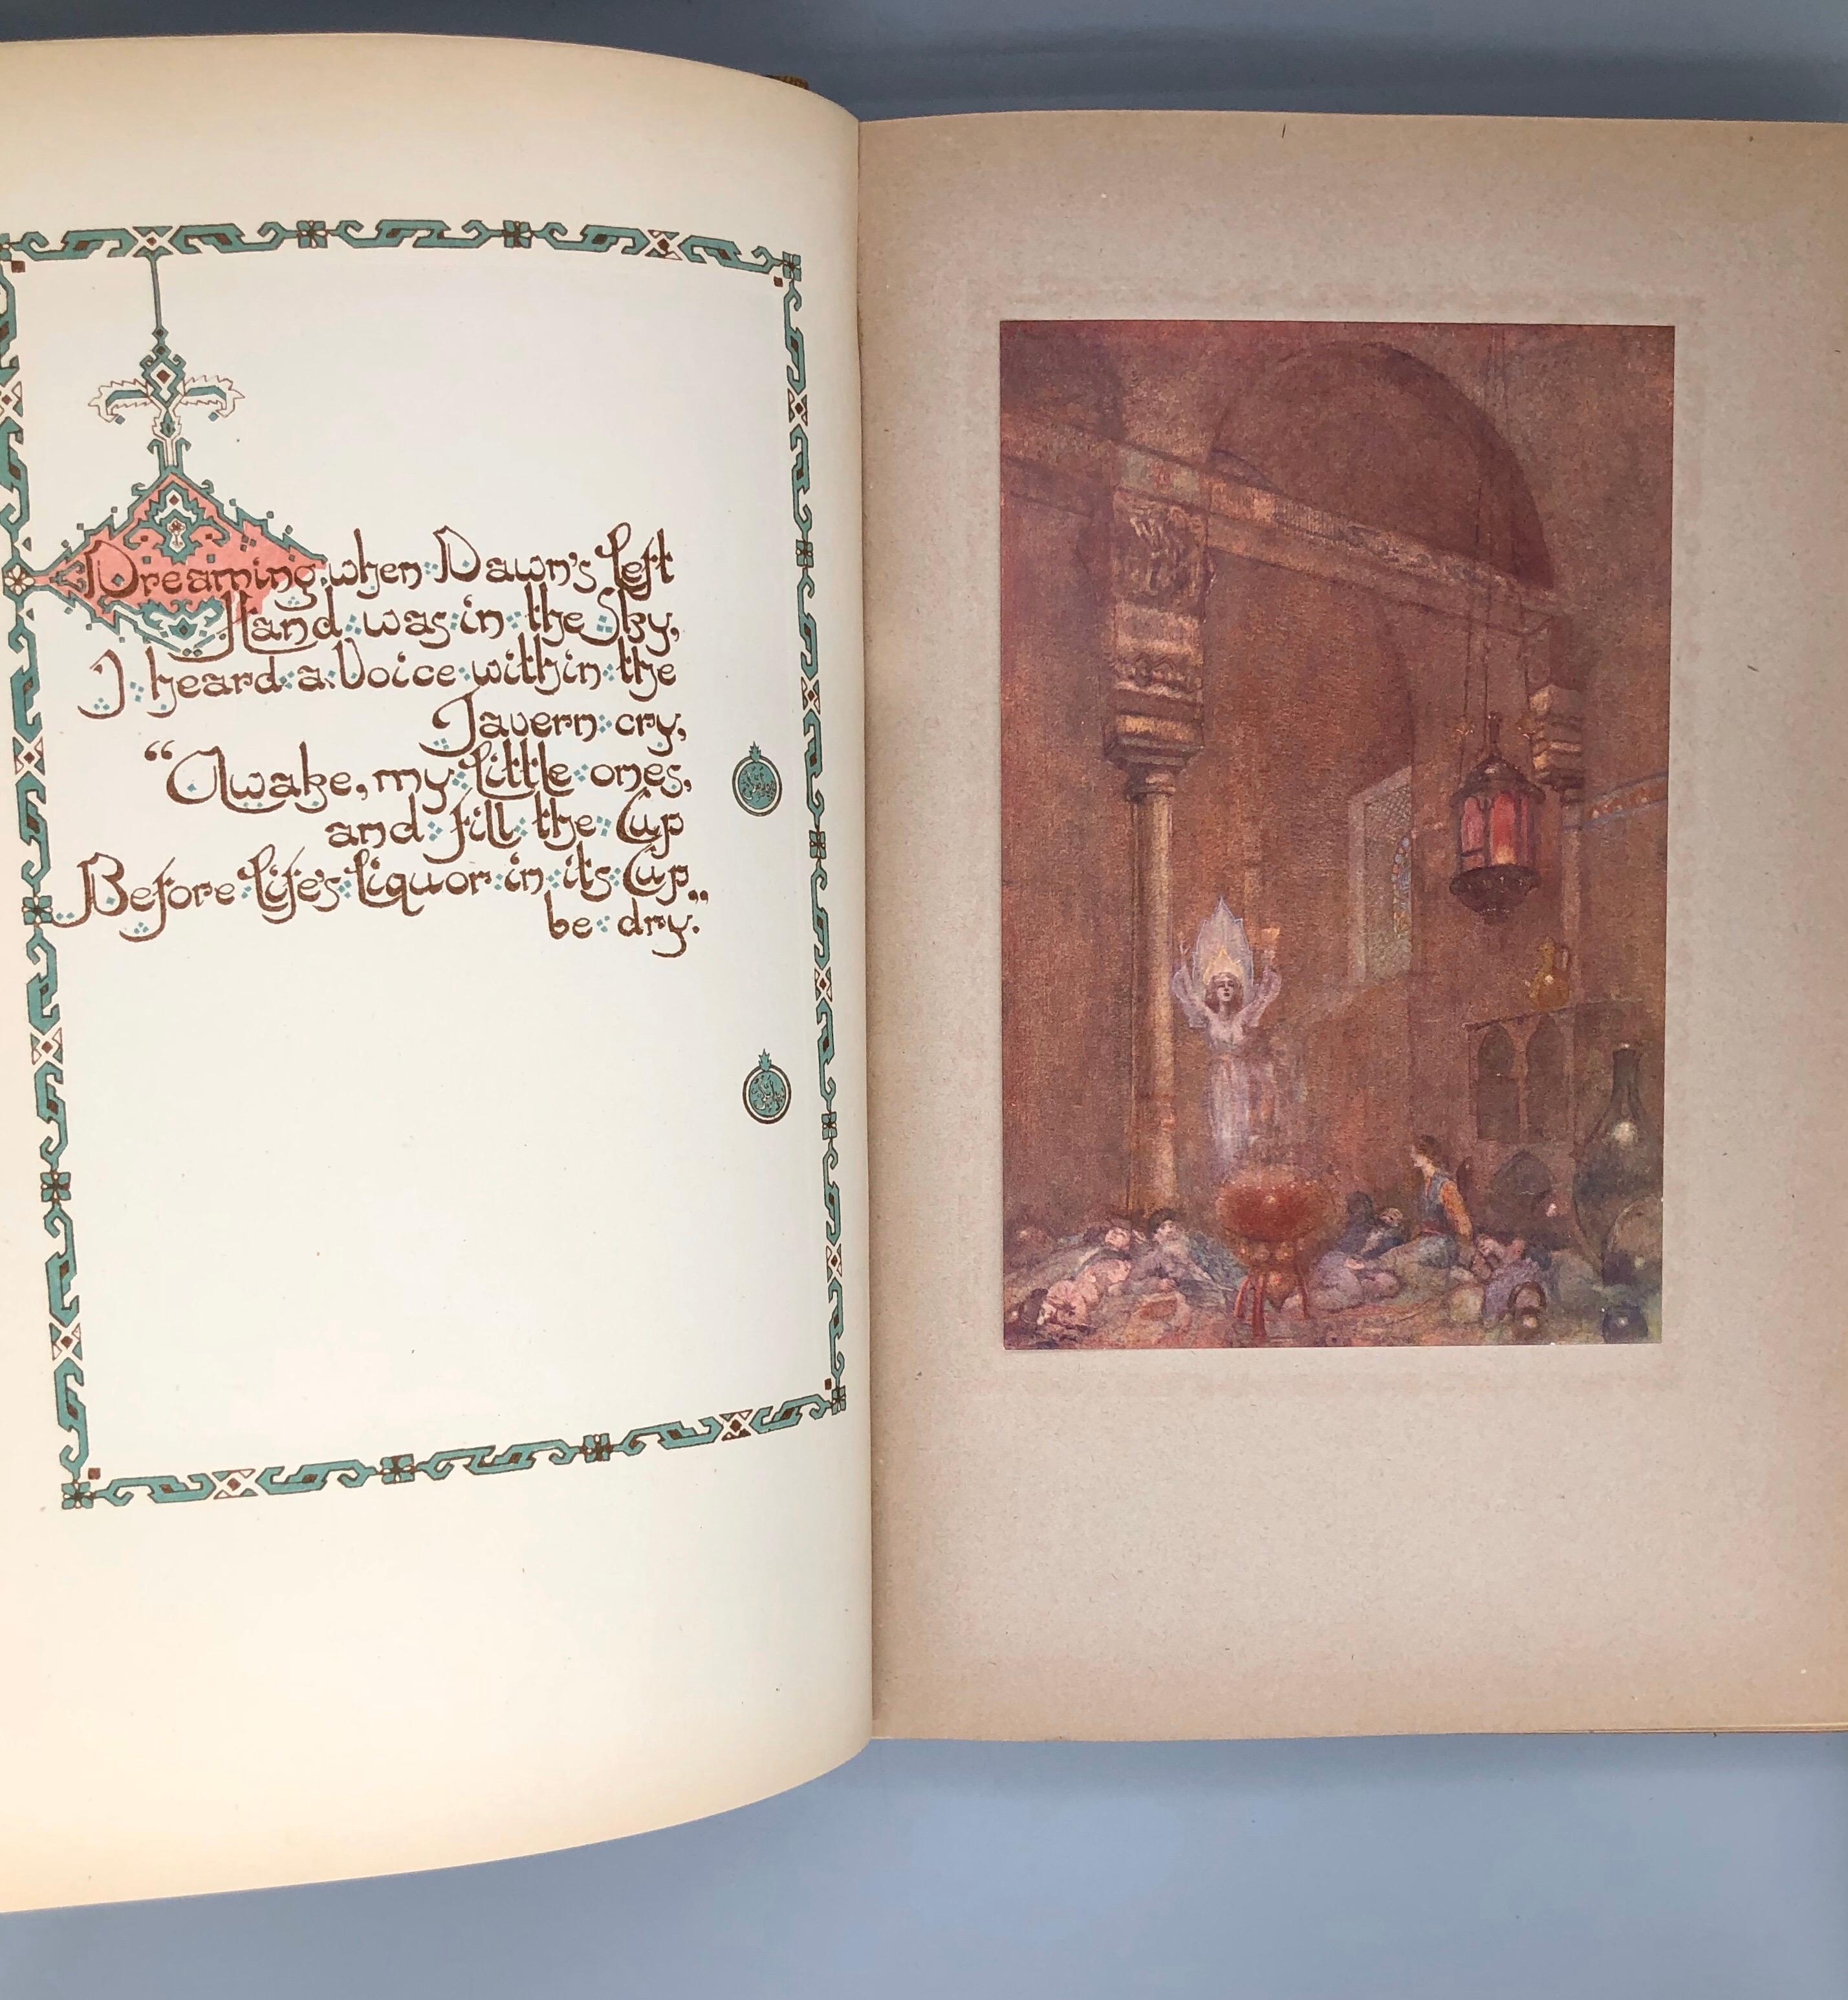 Dreaming, when Dawn's Left
Hand was in the Sky,
I heard a Voice within the
Tavern cry,
“Awake, my Little ones,
and fill the Cup
Before Life's Liquor in its Cup
be dry.”